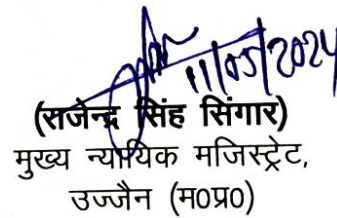 11/05/2024
(राजेन्द्र सिंह सिंगार)
मुख्य न्यायिक मजिस्ट्रेट,
उज्जैन (म0प्र0)